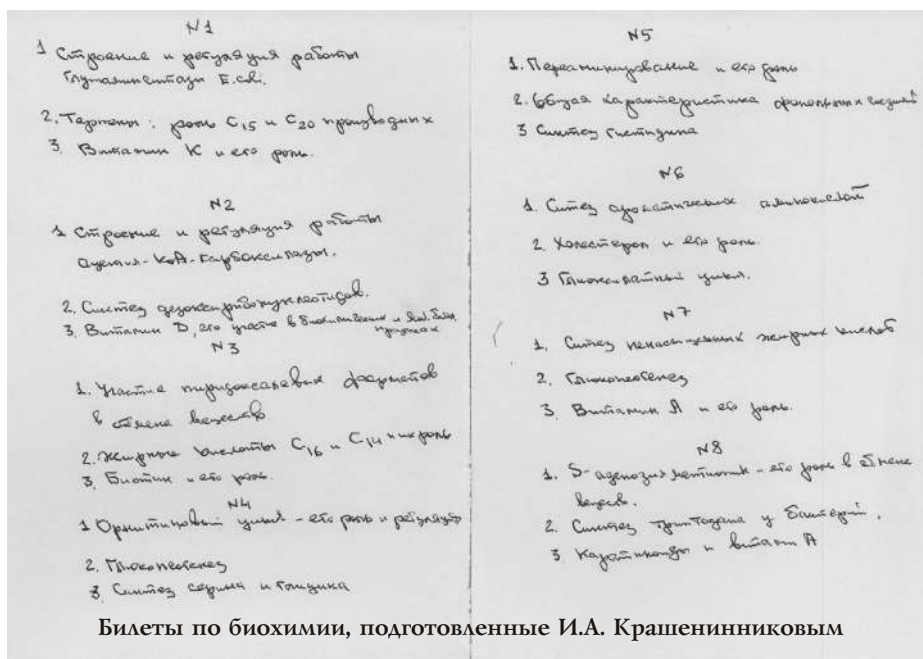 N1
1 Строение и регуляция работы
Глутаминсинтазы E.coli.
2. Терпены: роль C15 и C20 производных
3. Витамин К и его роль.
N2
1 Строение и регуляция работы
ацетил-КоА-карбоксилазы.
2. Синтез дезоксирибонуклеотидов.
3. Витамин D, его участие в биохимических и
процессах
N3
1. Участие пиридоксалевых ферментов
в обмене веществ
2. Жирные кислоты C16 и C14 и их роль
3. Биотин и его роль.
N4
1 Орнитиновый цикл - его роль и регуляция
2. Глюконеогенез
3 Синтез серина и глицина
N5
1. Переаминирование и его роль
2. Общая характеристика
3 Синтез гистидина
N6
1. Синтез ароматических аминокислот
2. Холестерол и его роль.
3 Глиоксилатный цикл.
N7
1. Синтез ненасыщенных жирных кислот
2. Глюконеогенез
3. Витамин А и его роль.
N8
1. S-аденозилметионин - его роль в обмене
веществ.
2. Синтез триптофана у бактерий.
3. Каротиноиды и витамин А
Билеты по биохимии, подготовленные И.А. Крашенинниковым